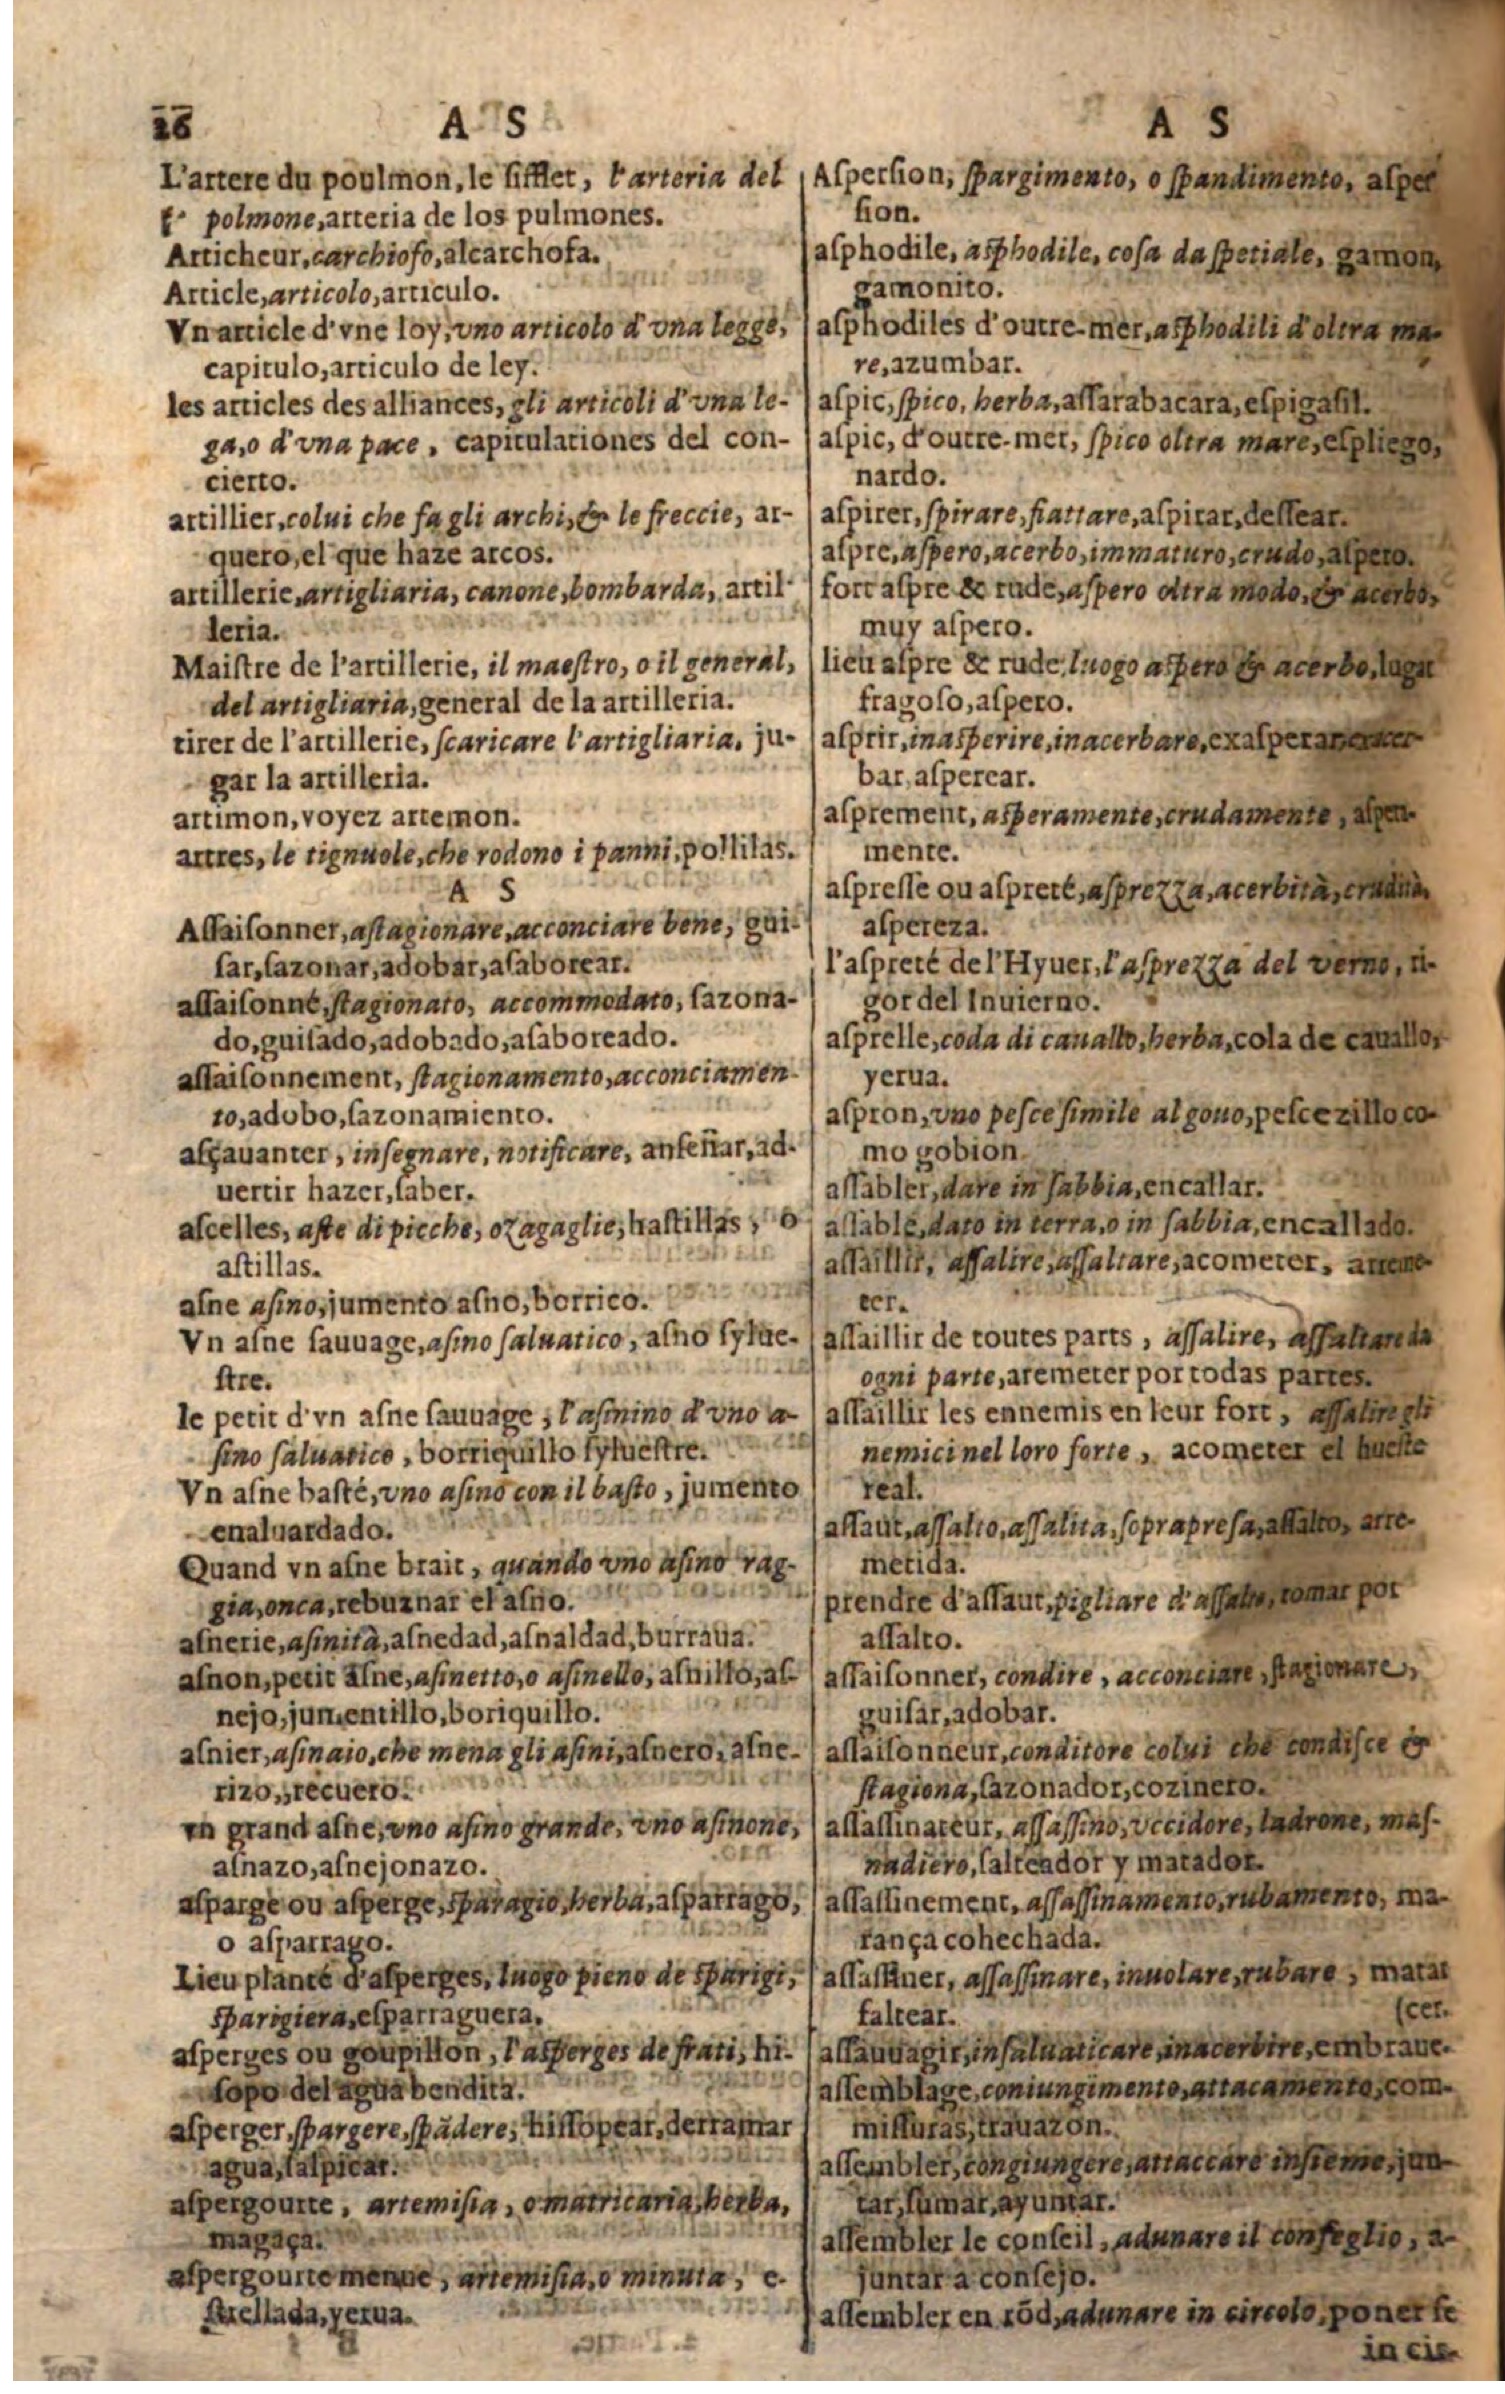 26 A S A S
L'artere du poulmon, le sifflet, l'arteria del
polmone, arteria de los pulmones.
Articheur, carchiofo, alcarchofa.
Article, articolo, articulo.
Vn article d'vne loy, vno articolo d'vna legge,
capitulo, articulo de ley.
les articles des alliances, gli articoli d'vna le-
ga, o d'vna pace, capitulationes del con-
cierto.
artillier, colui che fa gli archi, & le freccie, ar-
quero, el que haze arcos.
artillerie, artigliaria, canone, bombarda, artil-
leria.
Maistre de l'artillerie, il maestro, o il general,
del artigliaria, general de la artilleria.
tirer de l'artillerie, scaricare l'artigliaria, ju-
gar la artilleria.
artimon, voyez artemon.
artres, le tignuole, che rodono i panni, pollilas.
A S
Assaisonner, astagionare, acconciare bene, gui-
sar, sazonar, adobar, asaborear.
assaisonné, stagionato, accommodato, sazona-
do, guisado, adobado, asaboreado.
assaisonnement, stagionamento, acconciamen-
to, adobo, sazonamiento.
asçauanter, insegnare, notificare, anseñar, ad-
uertir hazer, saber.
ascelles, aste di picche, o zagaglie, hastillas, o
astillas.
asne asino, jumento asno, borrico.
Vn asne sauuage, asino saluatico, asno sylue-
stre.
le petit d'vn asne sauuage, l'asinino d'vno a-
sino saluatico, borriquillo syluestre.
Vn asne basté, vno asino con il basto, jumento
enaluardado.
Quand vn asne brait, quando vno asino rag-
gia, onca, rebuznar el asno.
asnerie, asinità, asnedad, asnaldad, burraua.
asnon, petit asne, asinetto, o asinello, asnillo, as-
nejo, jumentillo, boriquillo.
asnier, asinaio, che mena gli asini, asnero, asne-
rizo,, recuero.
vn grand asne, vno asino grande, vno asinone,
asnazo, asnejonazo.
asparge ou asperge, sparagio, herba, asparrago,
o asparrago.
Lieu planté d'asperges, luogo pieno de sparigi,
sparigiera, esparraguera.
asperges ou goupillon, l'asperges de frati, hi-
sopo del agua bendita.
asperger, spargere, spãdere, hissopear, derramar
agua, salpicar.
aspergoutte, artemisia, o matricaria, herba,
magaça.
aspergoutte menue, artemisia, o minuta, e-
strellada, yerua.
Aspersion, spargimento, o spandimento, asper
sion.
asphodile, asphodile, cosa da spetiale, gamon,
gamonito.
asphodiles d'outre-mer, asphodili d'oltra ma-
re, azumbar.
aspic, spico, herba, assarabacara, espigasil.
aspic, d'outre-mer, spico oltra mare, espliego,
nardo.
aspirer, spirare, fiattare, aspirar, dessear.
aspre, aspero, acerbo, immaturo, crudo, aspero.
fort aspre & rude, aspero oltra modo, & acerbo,
muy aspero.
lieu aspre & rude, luogo aspero & acerbo, lugar
fragoso, aspero.
asprir, inasperire, inacerbare, exasperar, exacer-
bar, asperear.
asprement, asperamente, crudamente, asperi-
mente.
aspresse ou aspreté, asprezza, acerbità, crudità,
aspereza.
l'aspreté de l'Hyuer, l'asprezza del verno, ri-
gor del Inuierno.
asprelle, coda di cauallo, herba, cola de cauallo,
yerua.
aspron, vno pesce simile al gouo, pescezillo co-
mo gobion.
assabler, dare in sabbia, encallar.
assablé, dato in terra, o in sabbia, encallado.
assaillir, assalire, assaltare, acometer, arreme-
ter.
assaillir de toutes parts, assalire, assaltare da
ogni parte, aremeter por todas partes.
assaillir les ennemis en leur fort, assalire gli
nemici nel loro forte, acometer el hueste
real.
assaut, assalto, assalita, soprapresa, assalto, arre-
metida.
prendre d'assaut, pigliare d'assalto, tomar por
assalto.
assaisonner, condire, acconciare, stagionare,
guisar, adobar.
assaisonneur, conditore colui che condisce &
stagiona, sazonador, cozinero.
assassinateur, assassino, vccidore, ladrone, mas-
nadiero, salteador y matador.
assassinement, assassinamento, rubamento, ma-
tança cohechada.
assassiner, assassinare, inuolare, rubare, matar
saltear. (cer.
assauuagir, insaluaticare, inacerbire, embraue-
assemblage, coniungimento, attacamento, com-
missuras, trauazon.
assembler, congiungere, attaccare insieme, jun-
tar, sumar, ayuntar.
assembler le conseil, adunare il conseglio, a-
juntar a consejo.
assembler en rõd, adunare in circolo, poner se
in cir-